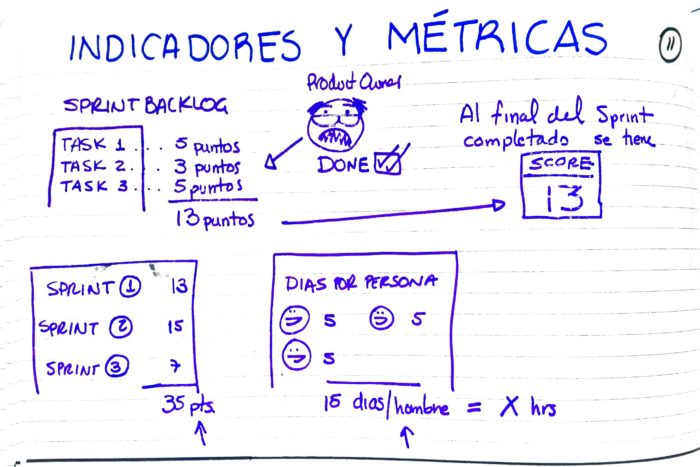 INDICADORES Y MÉTRICAS
11
Product Owner
SPRINT BACKLOG
TASK 1 . . . 5 puntos
TASK 2 . . . 3 puntos
TASK 3 . . . 5 puntos
13 puntos
DONE
Al final del Sprint
completado se tiene
SCORE
13
SPRINT 1 13
SPRINT 2 15
SPRINT 3 7
35 pts.
DIAS POR PERSONA
5 5
5
15 dias/hombre = X hrs